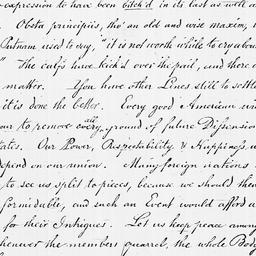 expression to have been bitch'd in its last as well a
Obsta principiis, tho' an old and wise maxim, i
Putnam used to cry, "it is not worth while to cry abou
" The calf's have kick'd over the pail, and there a
matter. You have other Lines still to settl
it is done the better. Every good American wi
our to remove every ground of future Dissensio
all
tates. Our Power, Respectability & Happiness w
depend on our union. Many foreign nations
to see us split to pieces, because we should then
formidable, and such an Event would afford a
for their Intrigues. Let us keep peace amon
henever the members quarrel, the whole Body